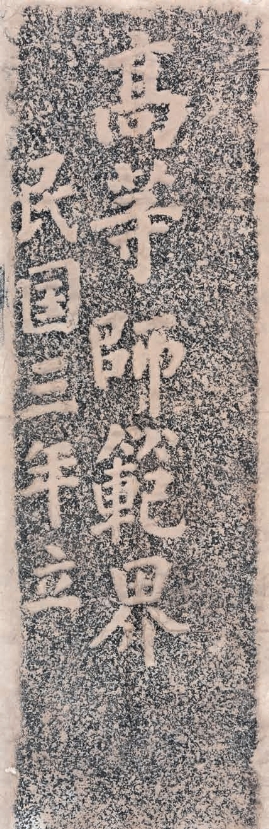 高等師範界
民国三年立